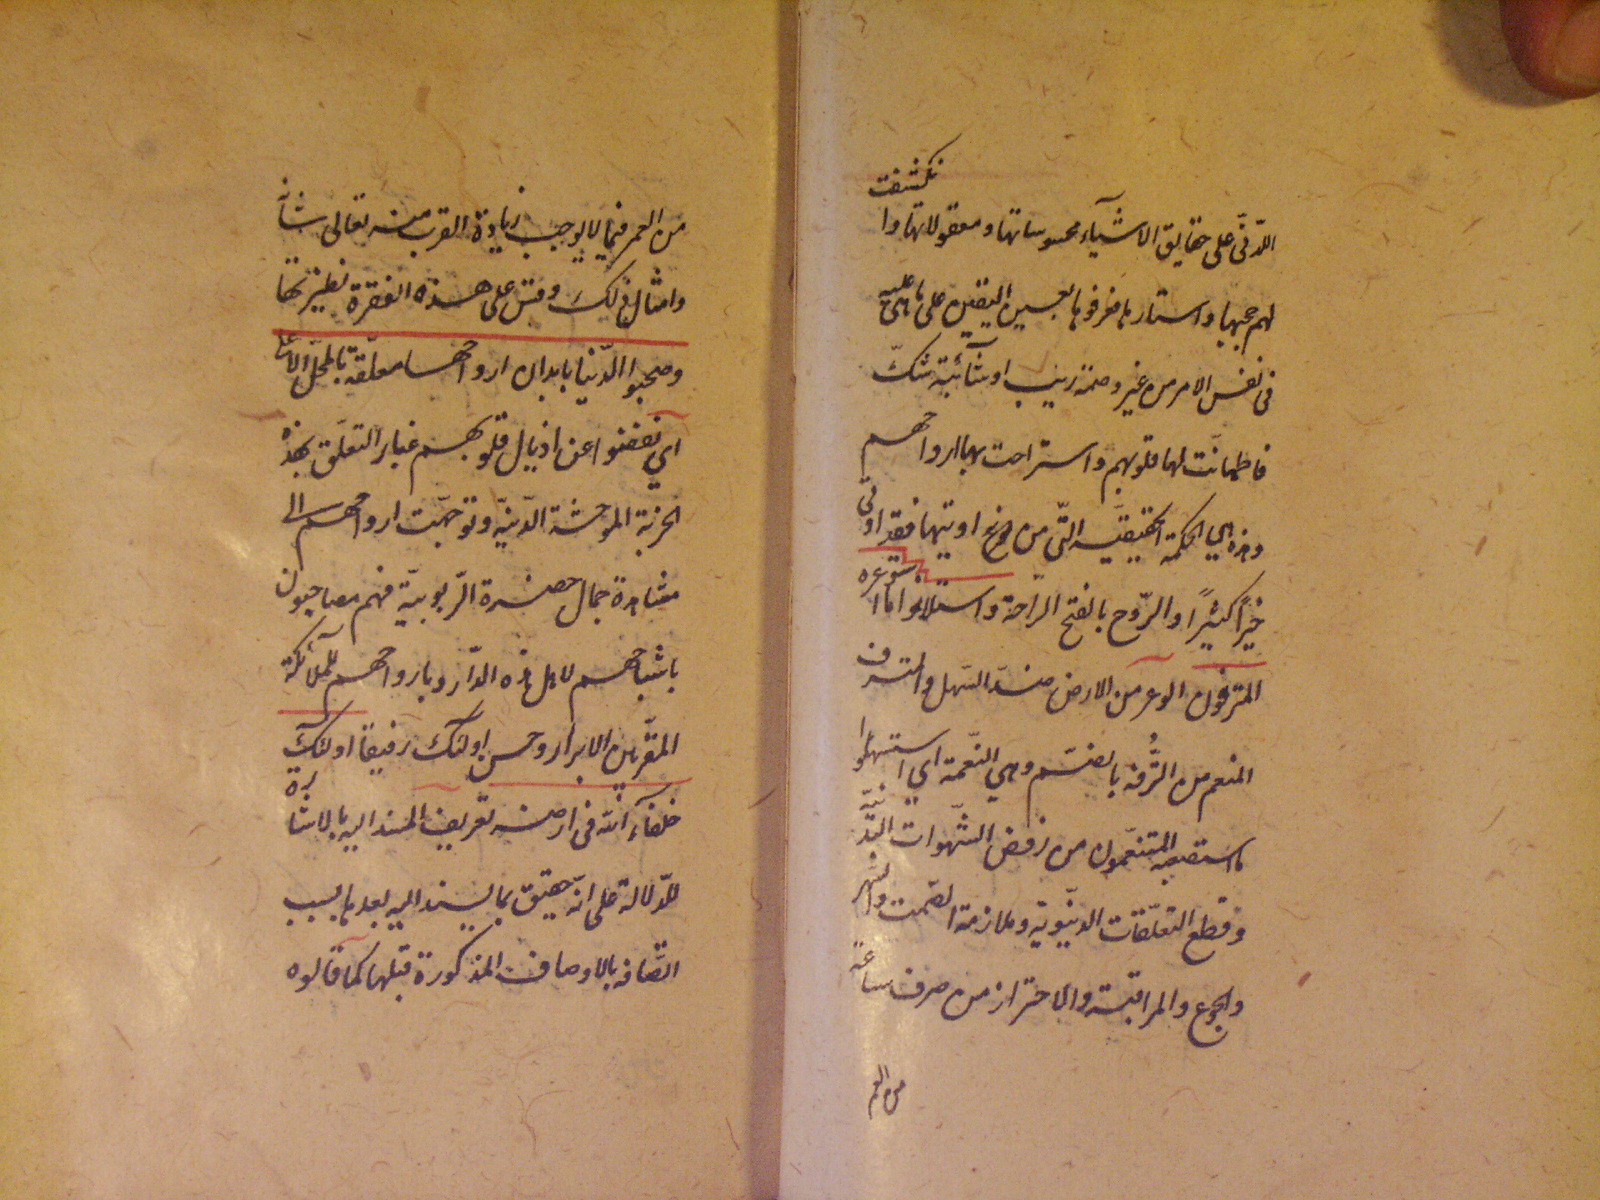 اللدنّى على حقايق الاشيآء محسوساتها ومعقولاتها وانكشفت
لهم حجبها واستارها فعرفوها بعين اليقين على ما هى عليه
فى نفس الامر من غير وصمة ريب او شآئبة شكّ
فاطمانّت لها قلوبهم واستراحت بها ارواحهم
وهذه هي الحكمة الحقيقيّه التّى من اوتيها فقد اوتى
خيرًا كثيرًا والرّوح بالفتح الراحة واستلانوا ما استوعره
المترفون الوعر من الارض ضدّ السّهل والمترف
المنعم من التُّرفه بالضّم وهي النّعمة اي استسهلوا
ما استصعبه المتنعّمون من رفض الشّهوات البدنيّة
وقطع التعلّقات الدنيّوية وملازمة الصّمت والسّهر
والجوع والمراقبة والاحتراز من صرف ساعة
من العمر
من العمر فيما لا يوجب زيادة القرب منه تعالى شانه
وامثال ذلك وقس على هذه الفقرة نظيرتها
وصحبوا الدّنيا بابدان ارواحها معلّقة بالمحلّ الاعلى
اي نفضوا عن اذيال قلوبهم غبار التعلّق بهذه
الخربة الموحشة الدّنيّة وتوجّهت ارواحهم الى
مشاهدة جمال حضرة الرّبوبيّة فهم مصاحبون
باشباحهم لاهل هذه الدّار وبارواحهم للملآئكة
المقرّبين الابرار وحسن اولئك رفيقا اولئك
خلفآء اللّه فى ارضه تعريف المسند اليه بالاشارة
للدّلالة على انّه حقيق بما يسند اليه بعدها بسبب
اتّصافه بالاوصاف المذكورة قبلها كما قالوه